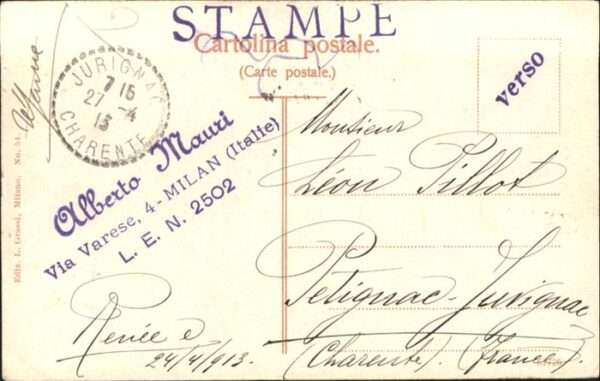 STAMPE
Cartolina postale.
(Carte postale.)
verso
JURIGNAC
7 15
27 -4
13
CHARENTE
Alberto Mauri
Via Varese, 4 - MILAN (Italie)
L. E. N. 2502
Edit. L. Grassi, Milano. No. 31.
Monsieur
Léon Pillot
Pétignac-Juvignac
(Charente). (France)
Renée e
24/4/913.